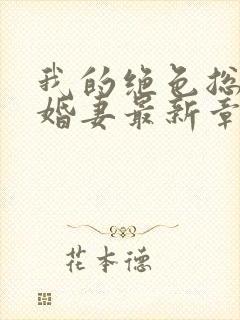 我的绝色总
婚妻最新章
花本德